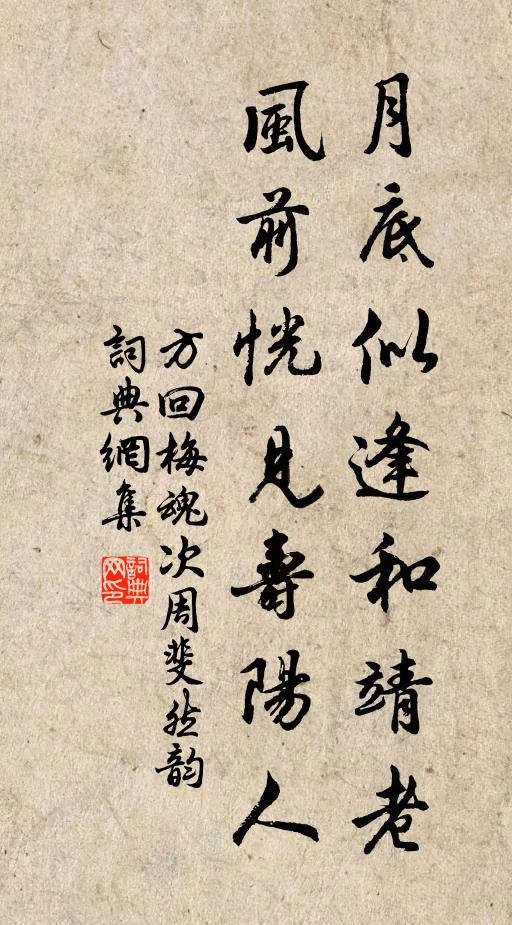 月底似逢和靖老
風前恍見壽陽人
方回梅魂次周斐然韵
詞典網集
詞典网印